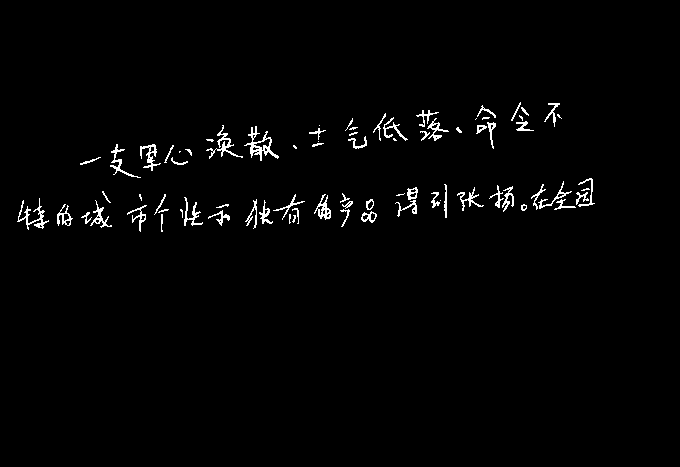 一支军心涣散、士气低落、命令不
特的城市个性和独有的产品得到张扬。在全国